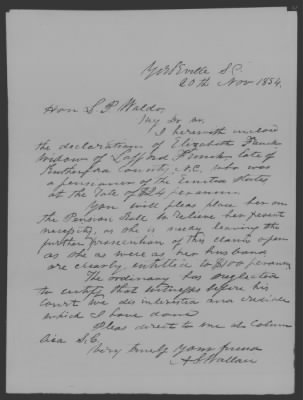 Yorkville S.C.
20th Nov 1854.
Hon L P Waldo,
My Dr Sr.
I herewith enclose
the declaration of Elizabeth French
widow of Lafford French late of
Rutherford County, N.C. who was
a pensioner of the United States
at the rate of $24 per annum.
You will pleas place her on
the Pension Roll to relieve her present
necessity, as she is away leaving the
further prosecution of this claim open
as she as were as her husband
are clearly entitled to $100 per annum
The ordinary has neglected
to certify that witnesses before his
court were disinterested and credible
which I have done
Pleas direct to me at Colum
bia S.C.
Very truly your friend
A S Wallace